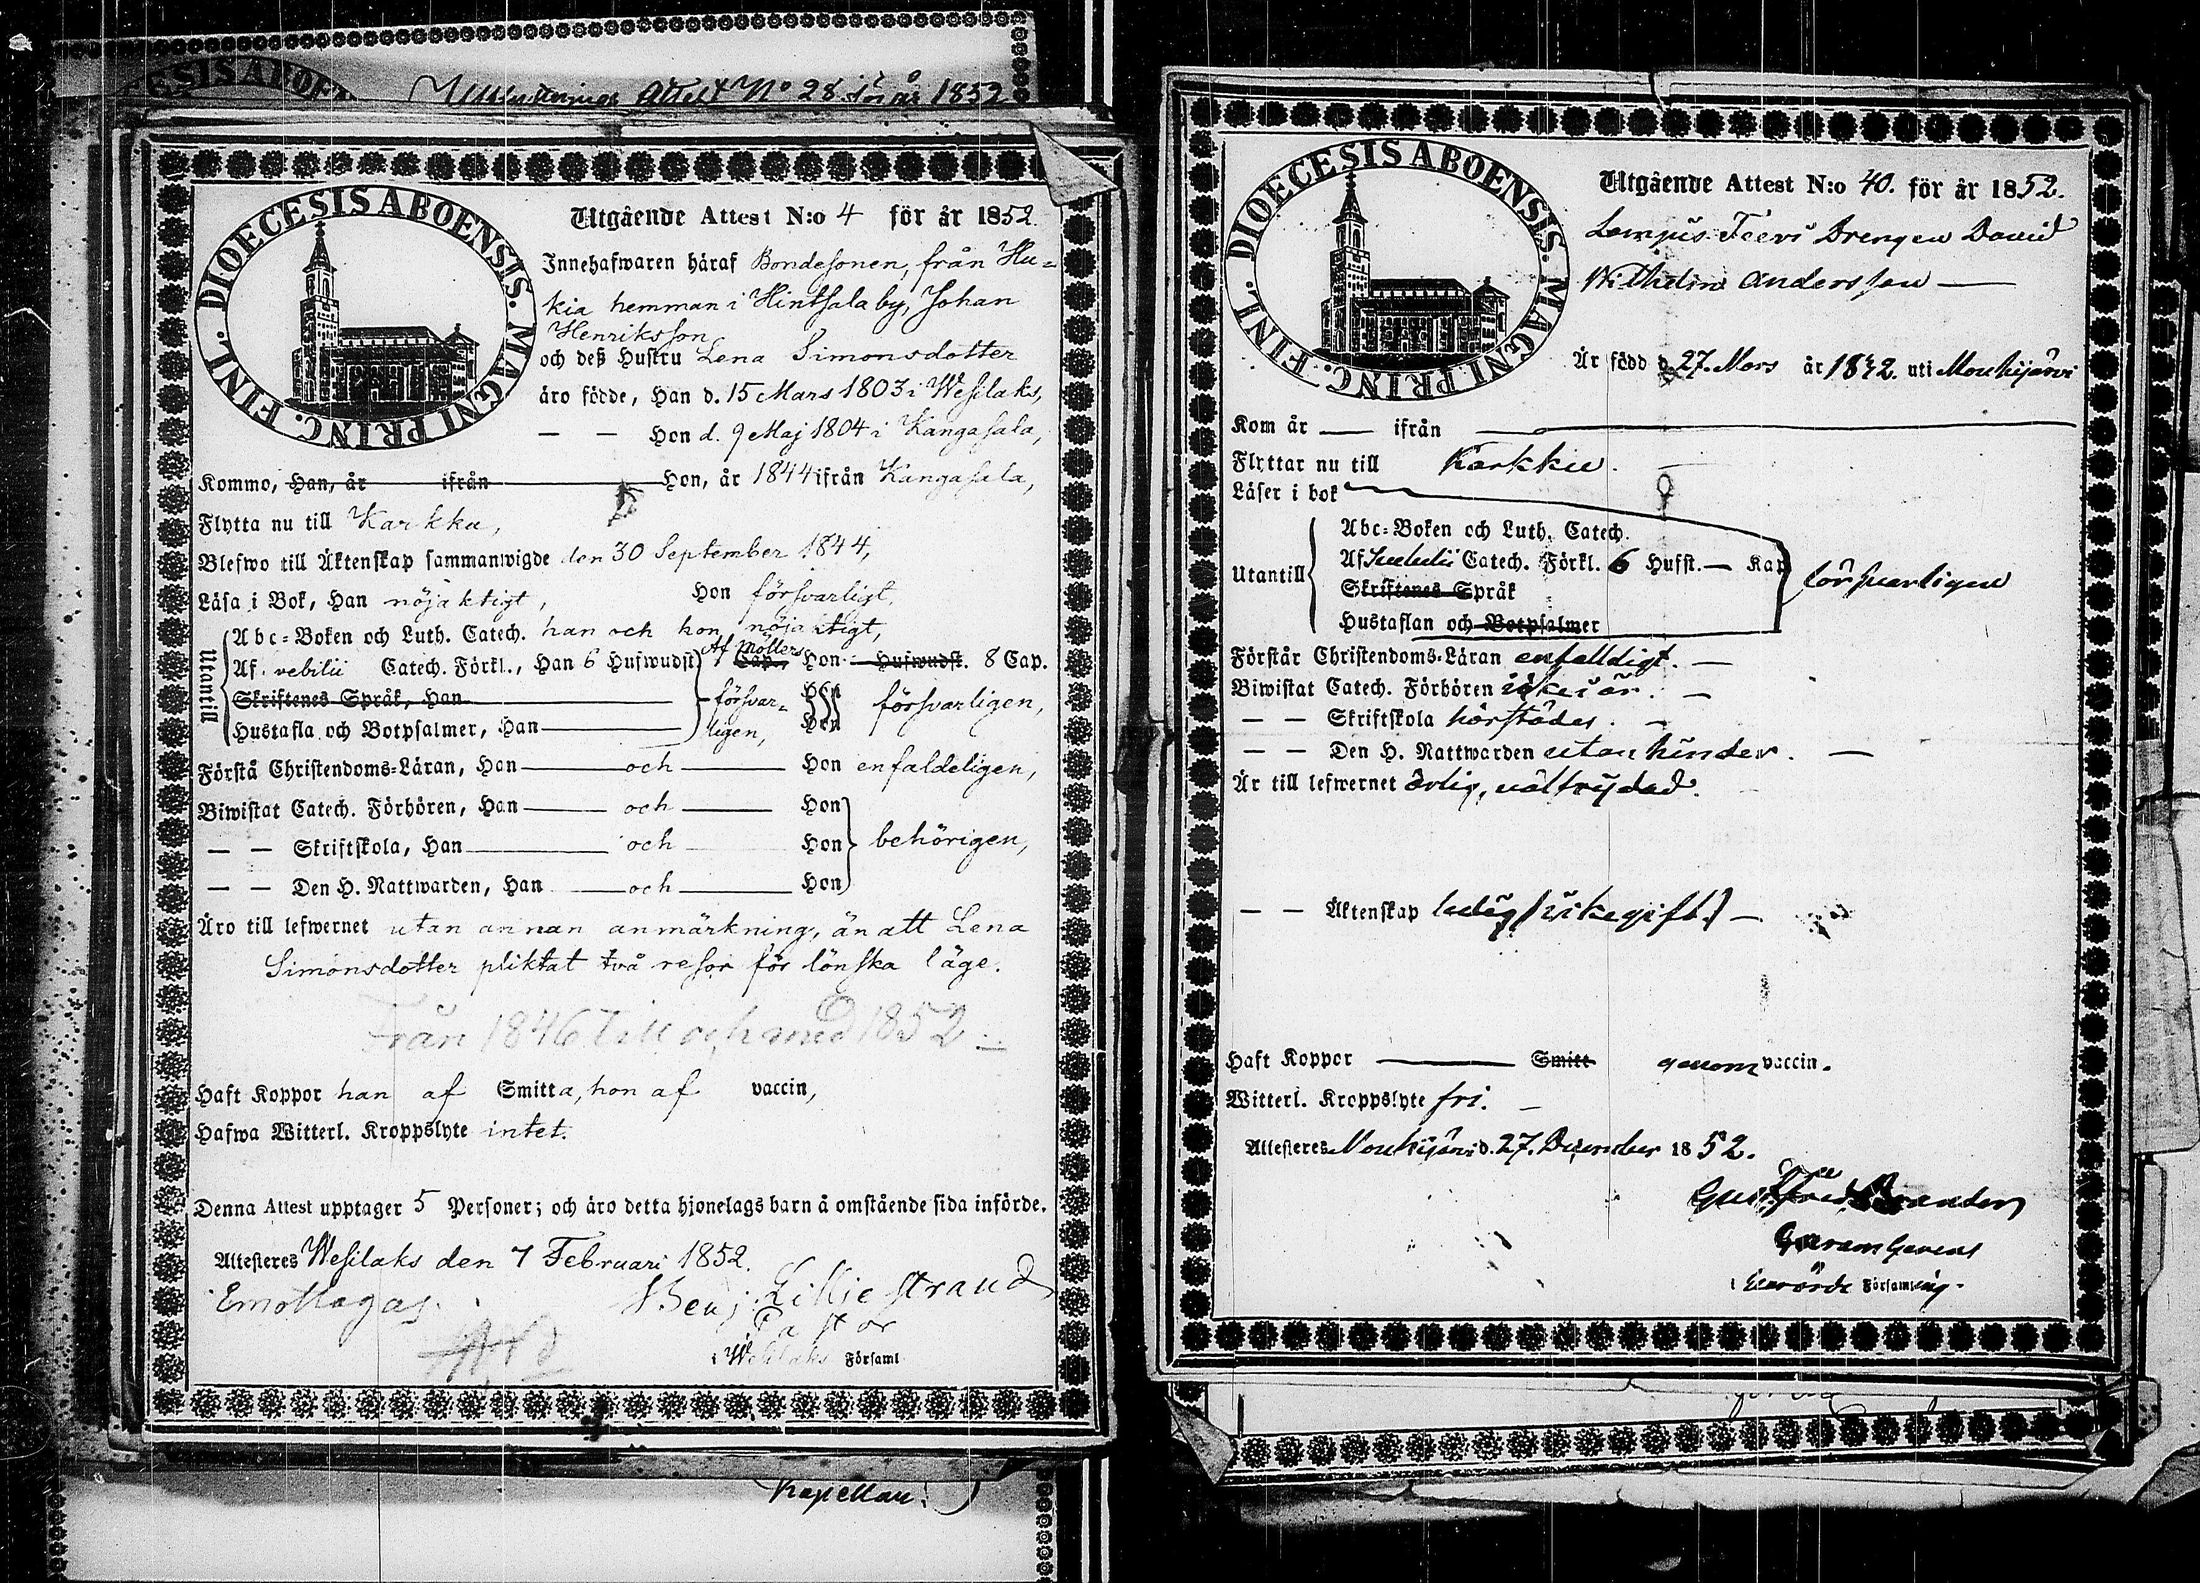 Attest No 28 för år 1852
DIOECESIS ABOENSIS. MAGNI PRINC. FINL.
Utgående Attest N:o 4 för år 1852.
Innehafwaren häraf Bondesonen, från Hu=
kia hemman i Hintsala by, Johan
Henriksson
och deß Hustru Lena Simonsdotter
äro födde, Han d. 15 Mars 1803 i Wesilaks,
— — Hon d. 9 Maj 1804 i Kangasala,
Kommo, Han, år ifrån Hon, år 1844 ifrån Kangasala,
Flytta nu till Karkku,
Blefwo till Äktenskap sammanwigde den 30 September 1844,
Läsa i Bok, Han nöjaktigt, Hon försvarligt,
Utantill
Abc=Boken och Luth. Catech. han och hon nöjaktigt,
Af vebilii Catech. Förkl., Han 6 Hufwudst. Cap. Af Möllers Hon Hufwudst. 8 Cap.
Skriftenes Språk, Han
Hustafla och Botpsalmer, Han försvar=ligen, Hon försvarligen,
Förstå Christendoms=Läran, Han och Hon enfaldeligen,
Biwistat Catech. Förhören, Han och Hon
— — Skriftskola, Han och Hon behörigen,
— — Den H. Nattwarden, Han och Hon
Äro till lefwernet utan annan anmärkning, än att Lena
Simonsdotter pliktat två resor för lönska läge.
Från 1846 till och med 1852
Haft Koppor han af Smitta, hon af vaccin,
Hafwa Witterl. Kroppslyte intet.
Denna Attest upptager 5 Personer; och äro detta hjonelags barn å omstående sida införde.
Attesteres Wesilaks den 7 Februari 1852.
Emottages. Benj. Lilliestrand
Pastor
i Wesilaks Församl
Kapellan.
DIOECESIS ABOENSIS. MAGNI PRINC. FINL.
Utgående Attest N:o 40. för år 1852.
Drengen David
Wilhelm Andersson —
Är född d. 27. Mars år uti Mouhijärvi
Kom år — ifrån
Flyttar nu till Karkku.
Läser i bok
Utantill
Abc=Boken och Luth. Catech.
Af Catech. Förkl. 6 Hufst. — Kap försvarligen
Skriftenes Språk
Hustaflan och Botpsalmer
Förstår Christendoms=Läran enfalldigt. —
Biwistat Catech. Förhören —
— — Skriftskola härstädes. —
— — Den H. Nattwarden utan hinder. —
Är till lefwernet ärlig, välfrejdad.
— — Äktenskap ledig (ickegift) —
Haft Koppor — Smitt genom vaccin.
Witterl. Kroppslyte fri. —
Attesteres Mouhijärvi d. 27. December 1852.
Församling.